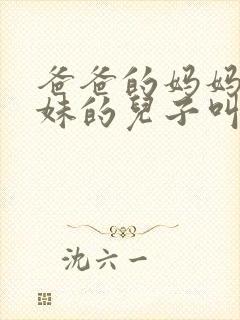 爸爸的妈妈
妹的兒子叫
沈六一